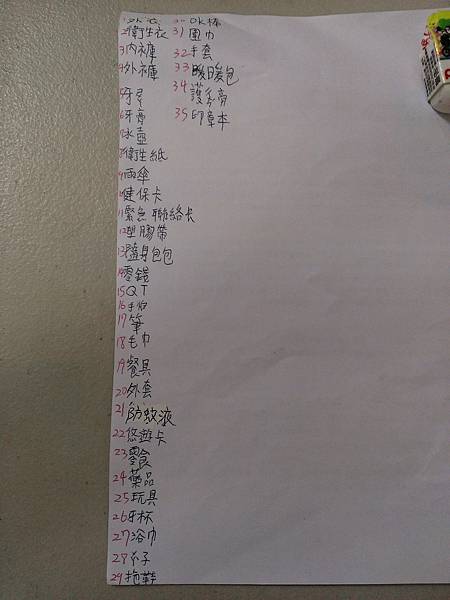 1外衣
2衛生衣
3內褲
4外褲
5牙刷
6牙膏
7水壺
8衛生紙
9雨傘
10健保卡
11緊急聯絡卡
12塑膠帶
13隨身包包
14零錢
15QT
16手帕
17筆
18毛巾
19餐具
20外套
21防蚊液
22悠遊卡
23零食
24藥品
25玩具
26牙杯
27浴巾
28
29拖鞋
30OK棒
31圍巾
32手套
33暖暖包
34護手膏
35印章本